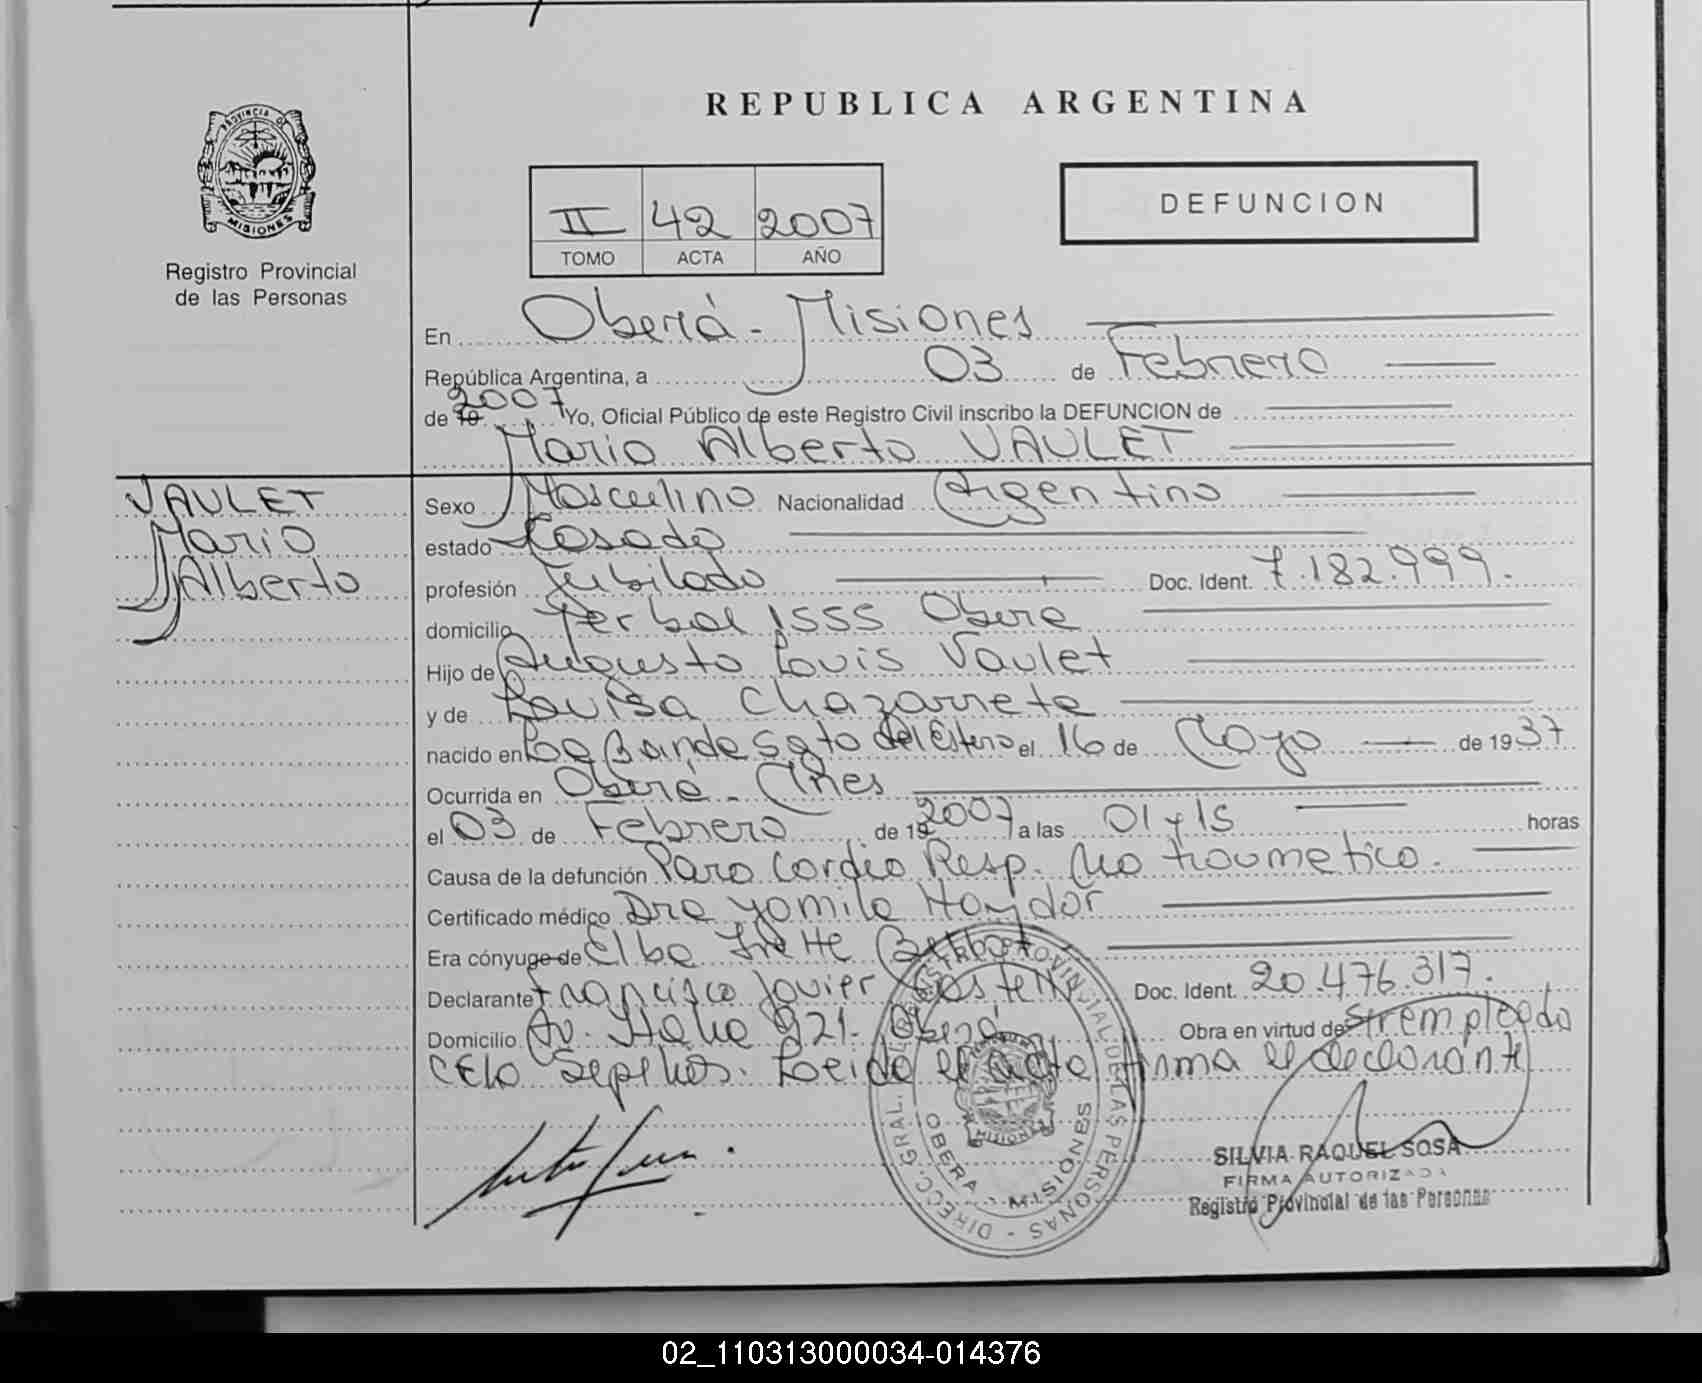 REPUBLICA ARGENTINA
PROVINCIA DE
MISIONES
Registro Provincial
de las Personas
II 42 2007
TOMO ACTA AÑO
DEFUNCION
En Oberá - Misiones
República Argentina, a 03 de Febrero
de 19 2007 Yo, Oficial Público de este Registro Civil inscribo la DEFUNCION de
Mario Alberto VAULET
VAULET
Mario
Alberto
Sexo Masculino Nacionalidad Argentino
estado Casado
profesión Jubilado Doc. Ident. 7.182.999.
domicilio Yerbal 1555 Oberá
Hijo de Augusto Louis Vaulet
y de Louisa Chazarreta
nacido en La Banda Sgto del Estero el 16 de Mayo de 1937
Ocurrida en Oberá - Mnes
el 03 de Febrero de 19 2007 a las 01 y 15 horas
Causa de la defunción Paro Cardio Resp. No traumatico.
Certificado médico Dra Yamila Haydar
Era cónyuge de Elba
Declarante Francisco Javier Doc. Ident. 20.476.317.
Domicilio Av. Italia 921. Oberá Obra en virtud de Sr. empleado
CELO Sepelios. Leida el acta firma el declarante
DIRECC. GRAL. REGISTRO PROVINCIAL DE LAS PERSONAS -
OBERA - MISIONES
MISIONES
SILVIA RAQUEL SOSA
FIRMA AUTORIZADA
Registro Provincial de las Personas
02_110313000034-014376